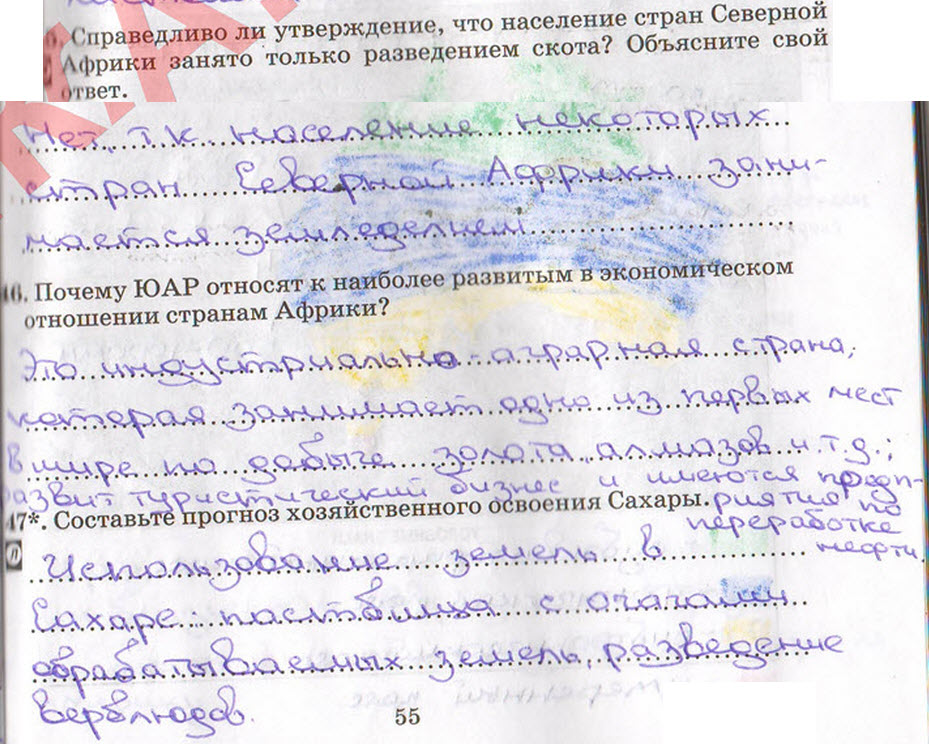 Справедливо ли утверждение, что население стран Северной
Африки занято только разведением скота? Объясните свой
ответ.
Нет, т.к население некоторых
стран Северной Африки зани-
мается земледелием
46. Почему ЮАР относят к наиболее развитым в экономическом
отношении странам Африки?
Это индустриально-аграрная страна,
которая занимает одно из первых мест
в мире по добыче золота, алмазов и.т.д.;
развит туристический бизнес и имеются предп-
риятия по
переработке
нефти
47*. Составьте прогноз хозяйственного освоения Сахары.
Л
Использование земель в
Сахаре пастбища с очагами
обрабатываемых земель, разведение
верблюдов.
55